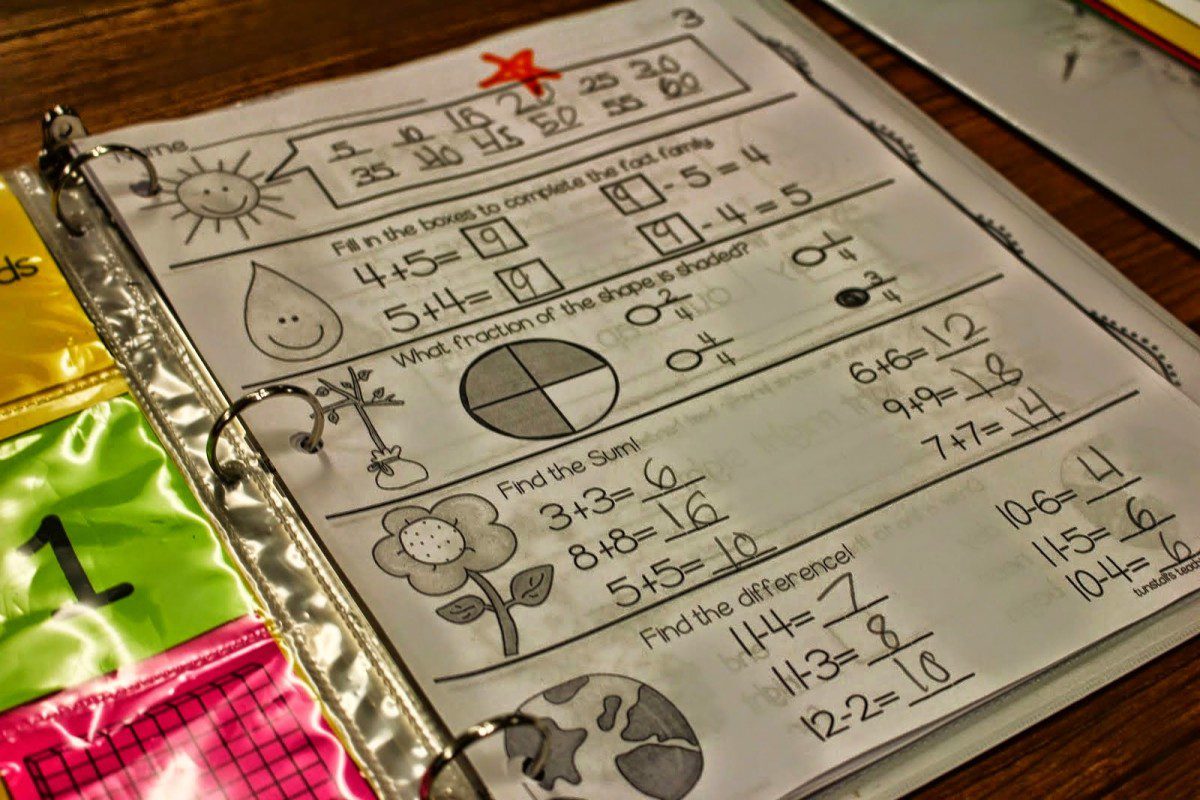 3
Name
5 10 15 20 25 30
35 40 45 50 55 60
Fill in the boxes to complete the fact family.
4+5= 9
9 - 5 = 4
5+4= 9
9 - 4 = 5
What fraction of the shape is shaded?
2/4
1/4
4/4
3/4
Find the Sum!
3+3= 6
6+6= 12
8+8= 16
9+9= 18
5+5= 10
7+7= 14
Find the difference!
11-4= 7
10-6= 4
11-3= 8
11-5= 6
12-2= 10
10-4= 6
tunstall's teach
ds
1